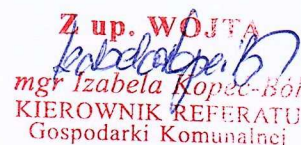 Z up. WÓJTA
mgr Izabela Kopeć-Bok
KIEROWNIK REFERATU
Gospodarki Komunalnej